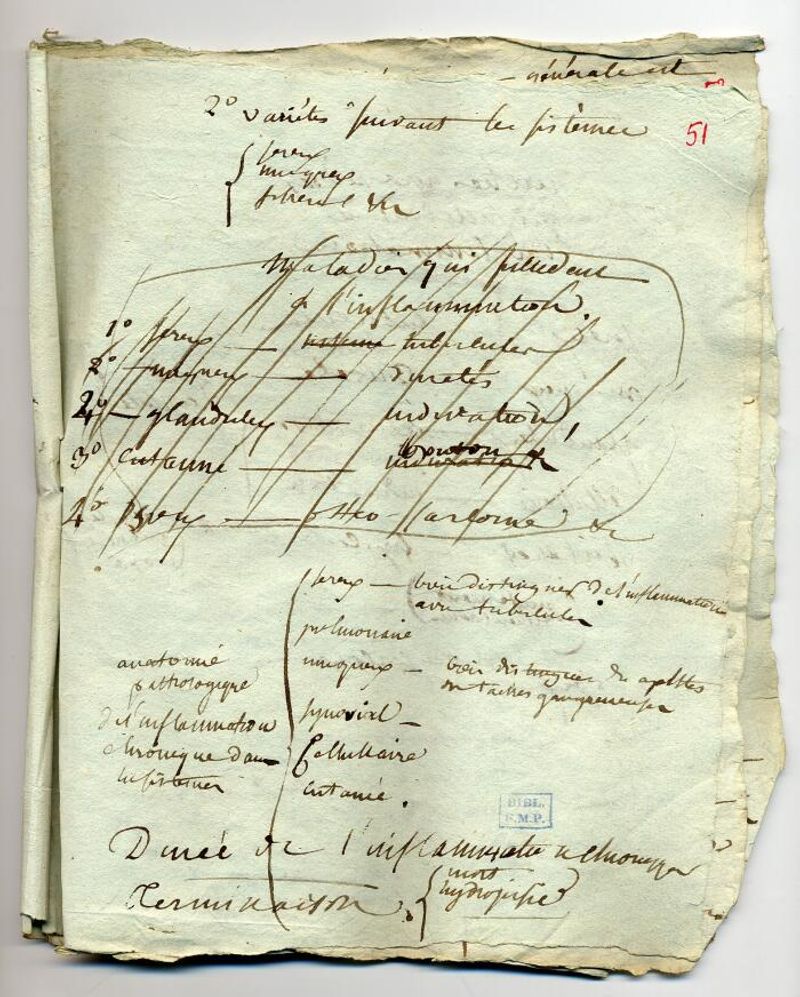 générale est
51
2° variétés suivant les sistèmes
séreux
muqueux
&c
Maladies qui succèdent
à l'inflammation.
1° séreux — tubercules
2° — muqueux — duretés
4° — glanduleux — induration
3° cutanné — induration
4° osseux — osteo-sarcome &c
séreux — bien distinguer de l'inflammation
avec tubercules
pulmonaire
muqueux — bien distinguer des aphtes
ou taches gangreneuses
synovial —
Cellullaire
cutanné.
anatomie
pathologique
de l'inflammation
chronique dans
les sistemes
Durée de l'inflammation chronique
Terminaison.
mort
hydropisie
BIBL.
S.M.P.